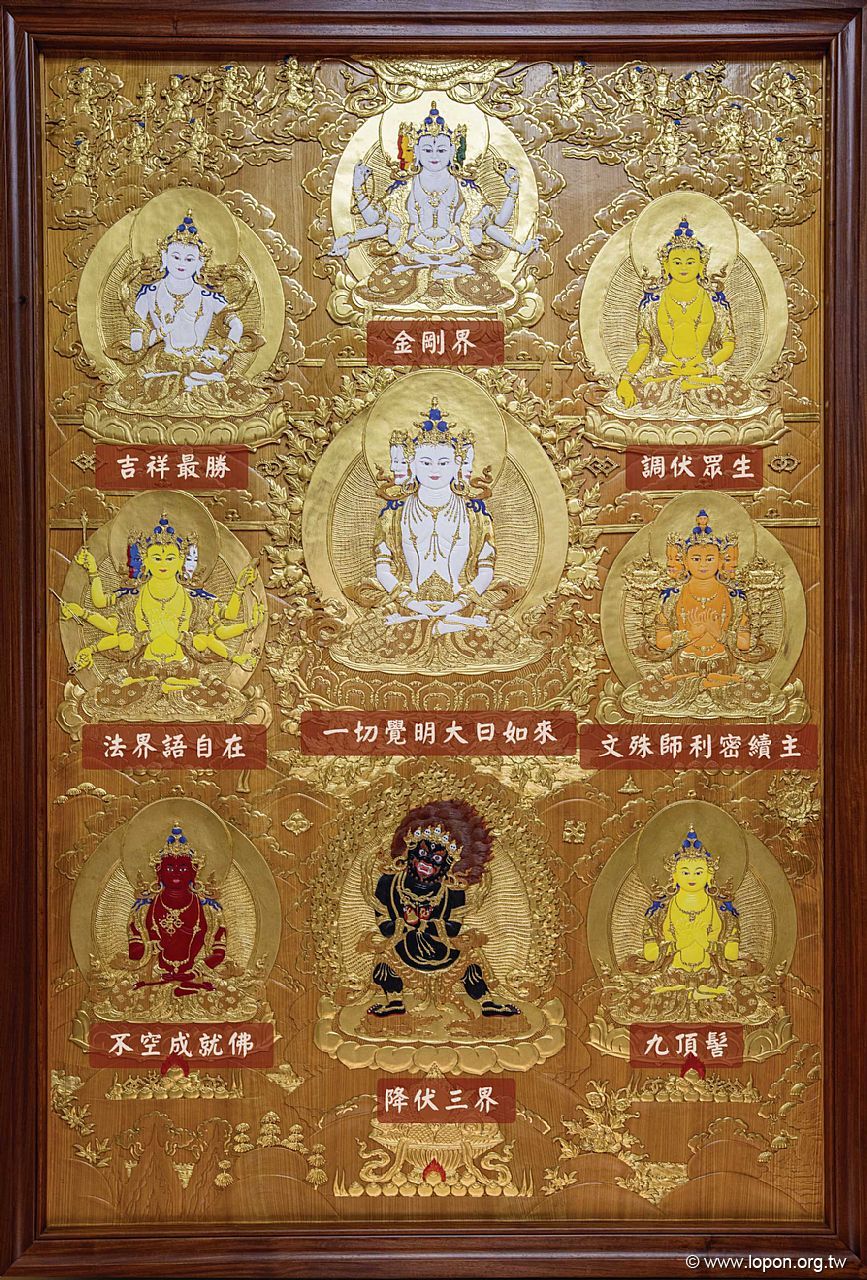 金剛界
吉祥最勝
調伏眾生
法界語自在
一切覺明大日如來
文殊師利密續主
不空成就佛
九頂髻
降伏三界
© www.lopon.org.tw